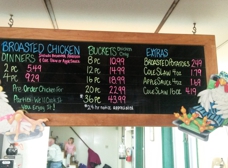 BROASTED CHICKEN
DINNERS
2 pc 5.49
4 pc 9.29
Pre Order Chicken for
BUCKETS Chicken Only
8 pc 10.99
12 pc 14.99
16 pc 18.99
20 pc 22.99
*36 pc 43.99
*24 hr notice appreciated
EXTRAS
BROASTED POTATOES 2.99
COLE SLAW 4oz 1.79
APPLESAUCE 4oz 1.69
COLE SLAW 16oz 4.19